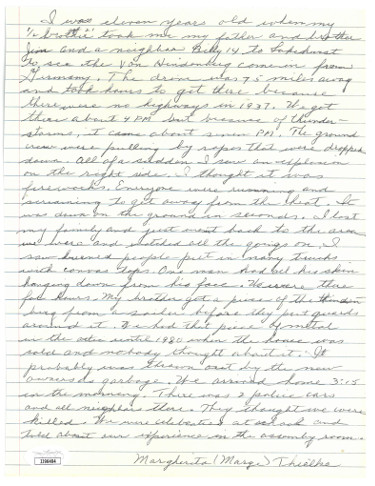 I was eleven years old when my
½ brother took me my father and brother
Jim and a neighbor Billy 14 to Lakehurst
to see the Von Hindenberg come in from
Germany. The drive was 75 miles away
and took hours to get there because
there were no highways in 1937. We got
there about 4 PM but because of thunder-
storms, it came about seven PM. The ground
crew were pulling by ropes that were dropped
down. All of a sudden I saw an explosion
on the right side. I thought it was
fireworks. Everyone were running and
screaming to get away from the heat. It
was down on the ground in seconds. I lost
my family and just went back to the area
we were and watched all the goings on. I
saw burned people put in navy trucks
with canvas tops. One man had all his skin
hanging down from his face. We were there
for hours. My brother got a piece of the Hinden
berg from a sailor before they put guards
around it. We had that piece of metal
in the attic until 1980 when the house was
sold and nobody thought about it. It
probably was thrown out by the new
owners as garbage. We arrived home 3:15
in the morning. There was 2 police cars
and all neighbors there. They thought we were
killed. We were celebrated at school and
told about our experience in the assembly room.
Margherita (Marge) Thielke
JSA